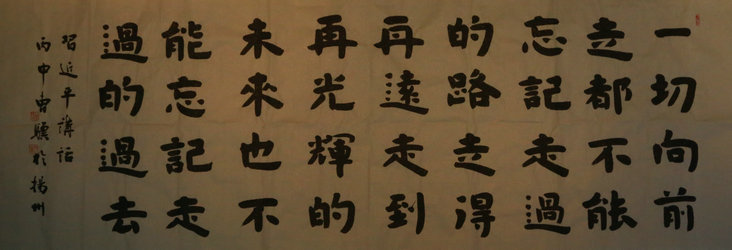 一切向前
走都不能
忘記走過
的路走得
再遠走到
再光輝的
未來也不
能忘記走
過的過去
習近平講話
丙申曹於揚州